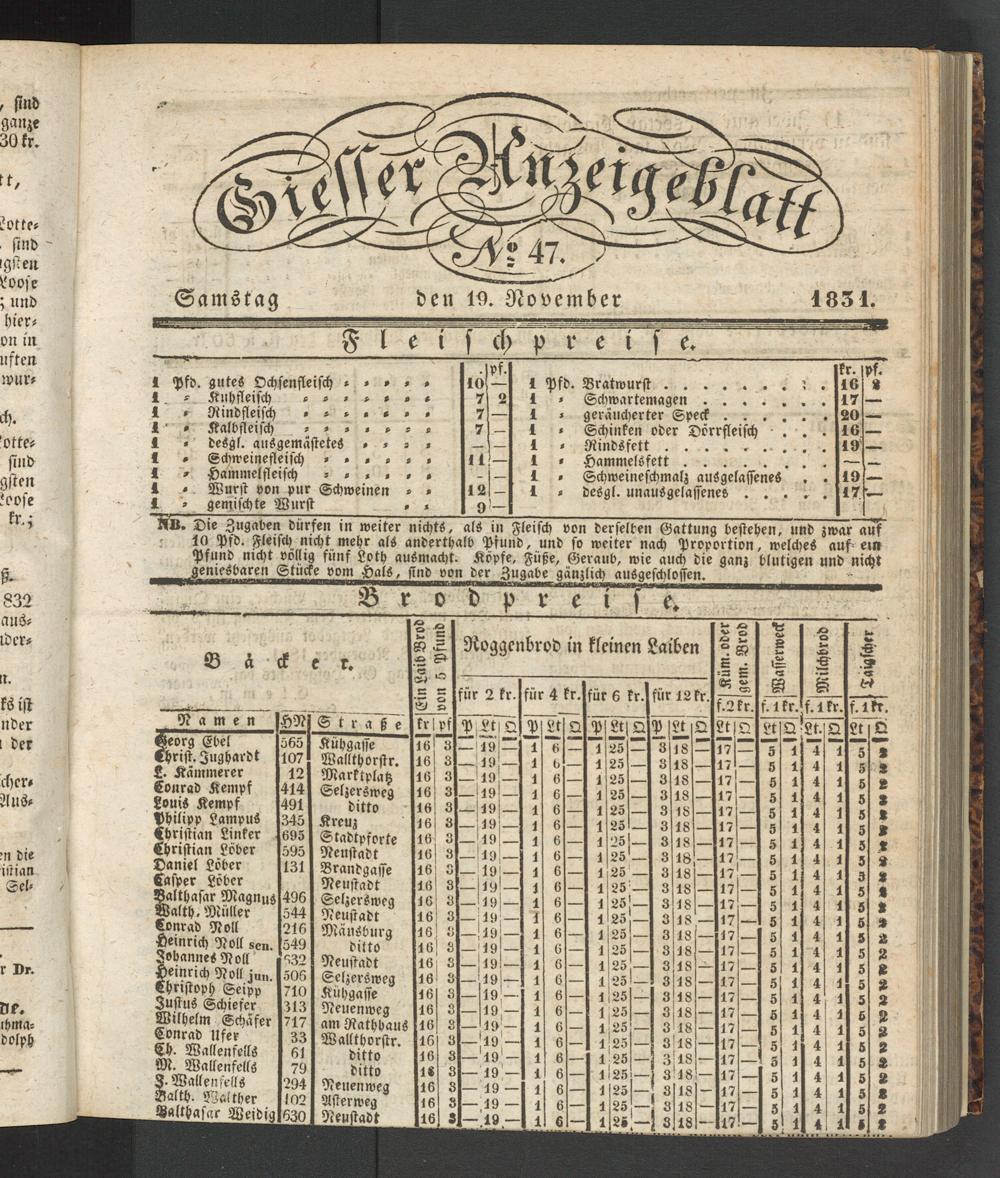 Giesser Anzeigeblatt
№ 47.
Samstag den 19. November 1831.
Fleischpreise.
pf. kr. pf.
1 Pfd. gutes Ochsenfleisch 10 — 1 Pfd. Bratwurst 16 2
1 " Kuhfleisch 7 2 1 " Schwartemagen 17 —
1 " Rindfleisch 7 — 1 " geräucherter Speck 20 —
1 " Kalbfleisch 7 — 1 " Schinken oder Dörrfleisch 16 —
1 " desgl. ausgemästetes — 1 " Rindsfett 19
1 " Schweinefleisch 11 — 1 " Hammelsfett —
1 " Hammelfleisch — 1 " Schweineschmalz ausgelassenes 19 —
1 " Wurst von pur Schweinen 12 — 1 " desgl. unausgelassenes 17
1 " gemischte Wurst 9 —
NB. Die Zugaben dürfen in weiter nichts, als in Fleisch von derselben Gattung bestehen, und zwar auf
10 Pfd. Fleisch nicht mehr als anderthalb Pfund, und so weiter nach Proportion, welches auf ein
Pfund nicht völlig fünf Loth ausmacht. Köpfe, Füße, Geraub, wie auch die ganz blutigen und nicht
geniesbaren Stücke vom Hals, sind von der Zugabe gänzlich ausgeschlossen.
Brodpreise.
Bäcker. Ein Laib Brod von 5 Pfund Roggenbrod in kleinen Laiben Küm. oder gem. Brod Wasserweck Milchbrod Taigscher
für 2 kr. für 4 kr. für 6 kr. für 12 kr. f. 2 kr. f. 1 kr. f. 1 kr. f. 1 kr.
Namen HN Straße kr pf P Lt Q P Lt Q P Lt Q P Lt Q Lt Q Lt Q Lt. Q Lt Q
Georg Ebel 565 Kühgasse 16 3 — 19 — 1 6 — 1 25 — 3 18 — 17 — 5 1 4 1 5 2
Christ. Jughardt 107 Wallthorstr. 16 3 — 19 — 1 6 — 1 25 — 3 18 — 17 — 5 1 4 1 5 2
L. Kämmerer 12 Marktplatz 16 3 — 19 — 1 6 — 1 25 — 3 18 — 17 — 5 1 4 1 5 2
Conrad Kempf 414 Selzersweg 16 3 — 19 — 1 6 — 1 25 — 3 18 — 17 — 5 1 4 1 5 2
Louis Kempf 491 ditto 16 3 — 19 — 1 6 — 1 25 — 3 18 — 17 — 5 1 4 1 5 2
Philipp Lampus 345 Kreuz 16 3 — 19 — 1 6 — 1 25 — 3 18 — 17 — 5 1 4 1 5 2
Christian Linker 695 Stadtpforte 16 3 — 19 — 1 6 — 1 25 — 3 18 — 17 — 5 1 4 1 5 2
Christian Löber 595 Neustadt 16 3 — 19 — 1 6 — 1 25 — 3 18 — 17 — 5 1 4 1 5 2
Daniel Löber 131 Brandgasse 16 3 — 19 — 1 6 — 1 25 — 3 18 — 17 — 5 1 4 1 5 2
Casper Löber Neustadt 16 3 — 19 — 1 6 — 1 25 — 3 18 — 17 — 5 1 4 1 5 2
Balthasar Magnus 496 Selzersweg 16 3 — 19 — 1 6 — 1 25 — 3 18 — 17 — 5 1 4 1 5 2
Balth. Müller 544 Neustadt 16 3 — 19 — 1 6 — 1 25 — 3 18 — 17 — 5 1 4 1 5 2
Conrad Noll 216 Mäusburg 16 3 — 19 — 1 6 — 1 25 — 3 18 — 17 — 5 1 4 1 5 2
Heinrich Noll sen. 549 ditto 16 3 — 19 — 1 6 — 1 25 — 3 18 — 17 — 5 1 4 1 5 2
Johannes Noll 632 Neustadt 16 3 — 19 — 1 6 — 1 25 — 3 18 — 17 — 5 1 4 1 5 2
Heinrich Noll jun. 506 Selzersweg 16 3 — 19 — 1 6 — 1 25 — 3 18 — 17 — 5 1 4 1 5 2
Christoph Seipp 710 Kühgasse 16 3 — 19 — 1 6 — 1 25 — 3 18 — 17 — 5 1 4 1 5 2
Justus Schiefer 313 Neuenweg 16 3 — 19 — 1 6 — 1 25 — 3 18 — 17 — 5 1 4 1 5 2
Wilhelm Schäfer 717 am Rathhaus 16 3 — 19 — 1 6 — 1 25 — 3 18 — 17 — 5 1 4 1 5 2
Conrad Ufer 33 Wallthorstr. 16 3 — 19 — 1 6 — 1 25 — 3 18 — 17 — 5 1 4 1 5 2
Ch. Wallenfells 61 ditto 16 3 — 19 — 1 6 — 1 25 — 3 18 — 17 — 5 1 4 1 5 2
M. Wallenfells 79 ditto 16 3 — 19 — 1 6 — 1 25 — 3 18 — 17 — 5 1 4 1 5 2
J. Wallenfells 294 Neuenweg 16 3 — 19 — 1 6 — 1 25 — 3 18 — 17 — 5 1 4 1 5 2
Balth. Walther 102 Asterweg 16 3 — 19 — 1 6 — 1 25 — 3 18 — 17 — 5 1 4 1 5 2
Balthasar Weidig 630 Neustadt 16 3 — 19 — 1 6 — 1 25 — 3 18 — 17 — 5 1 4 1 5 2